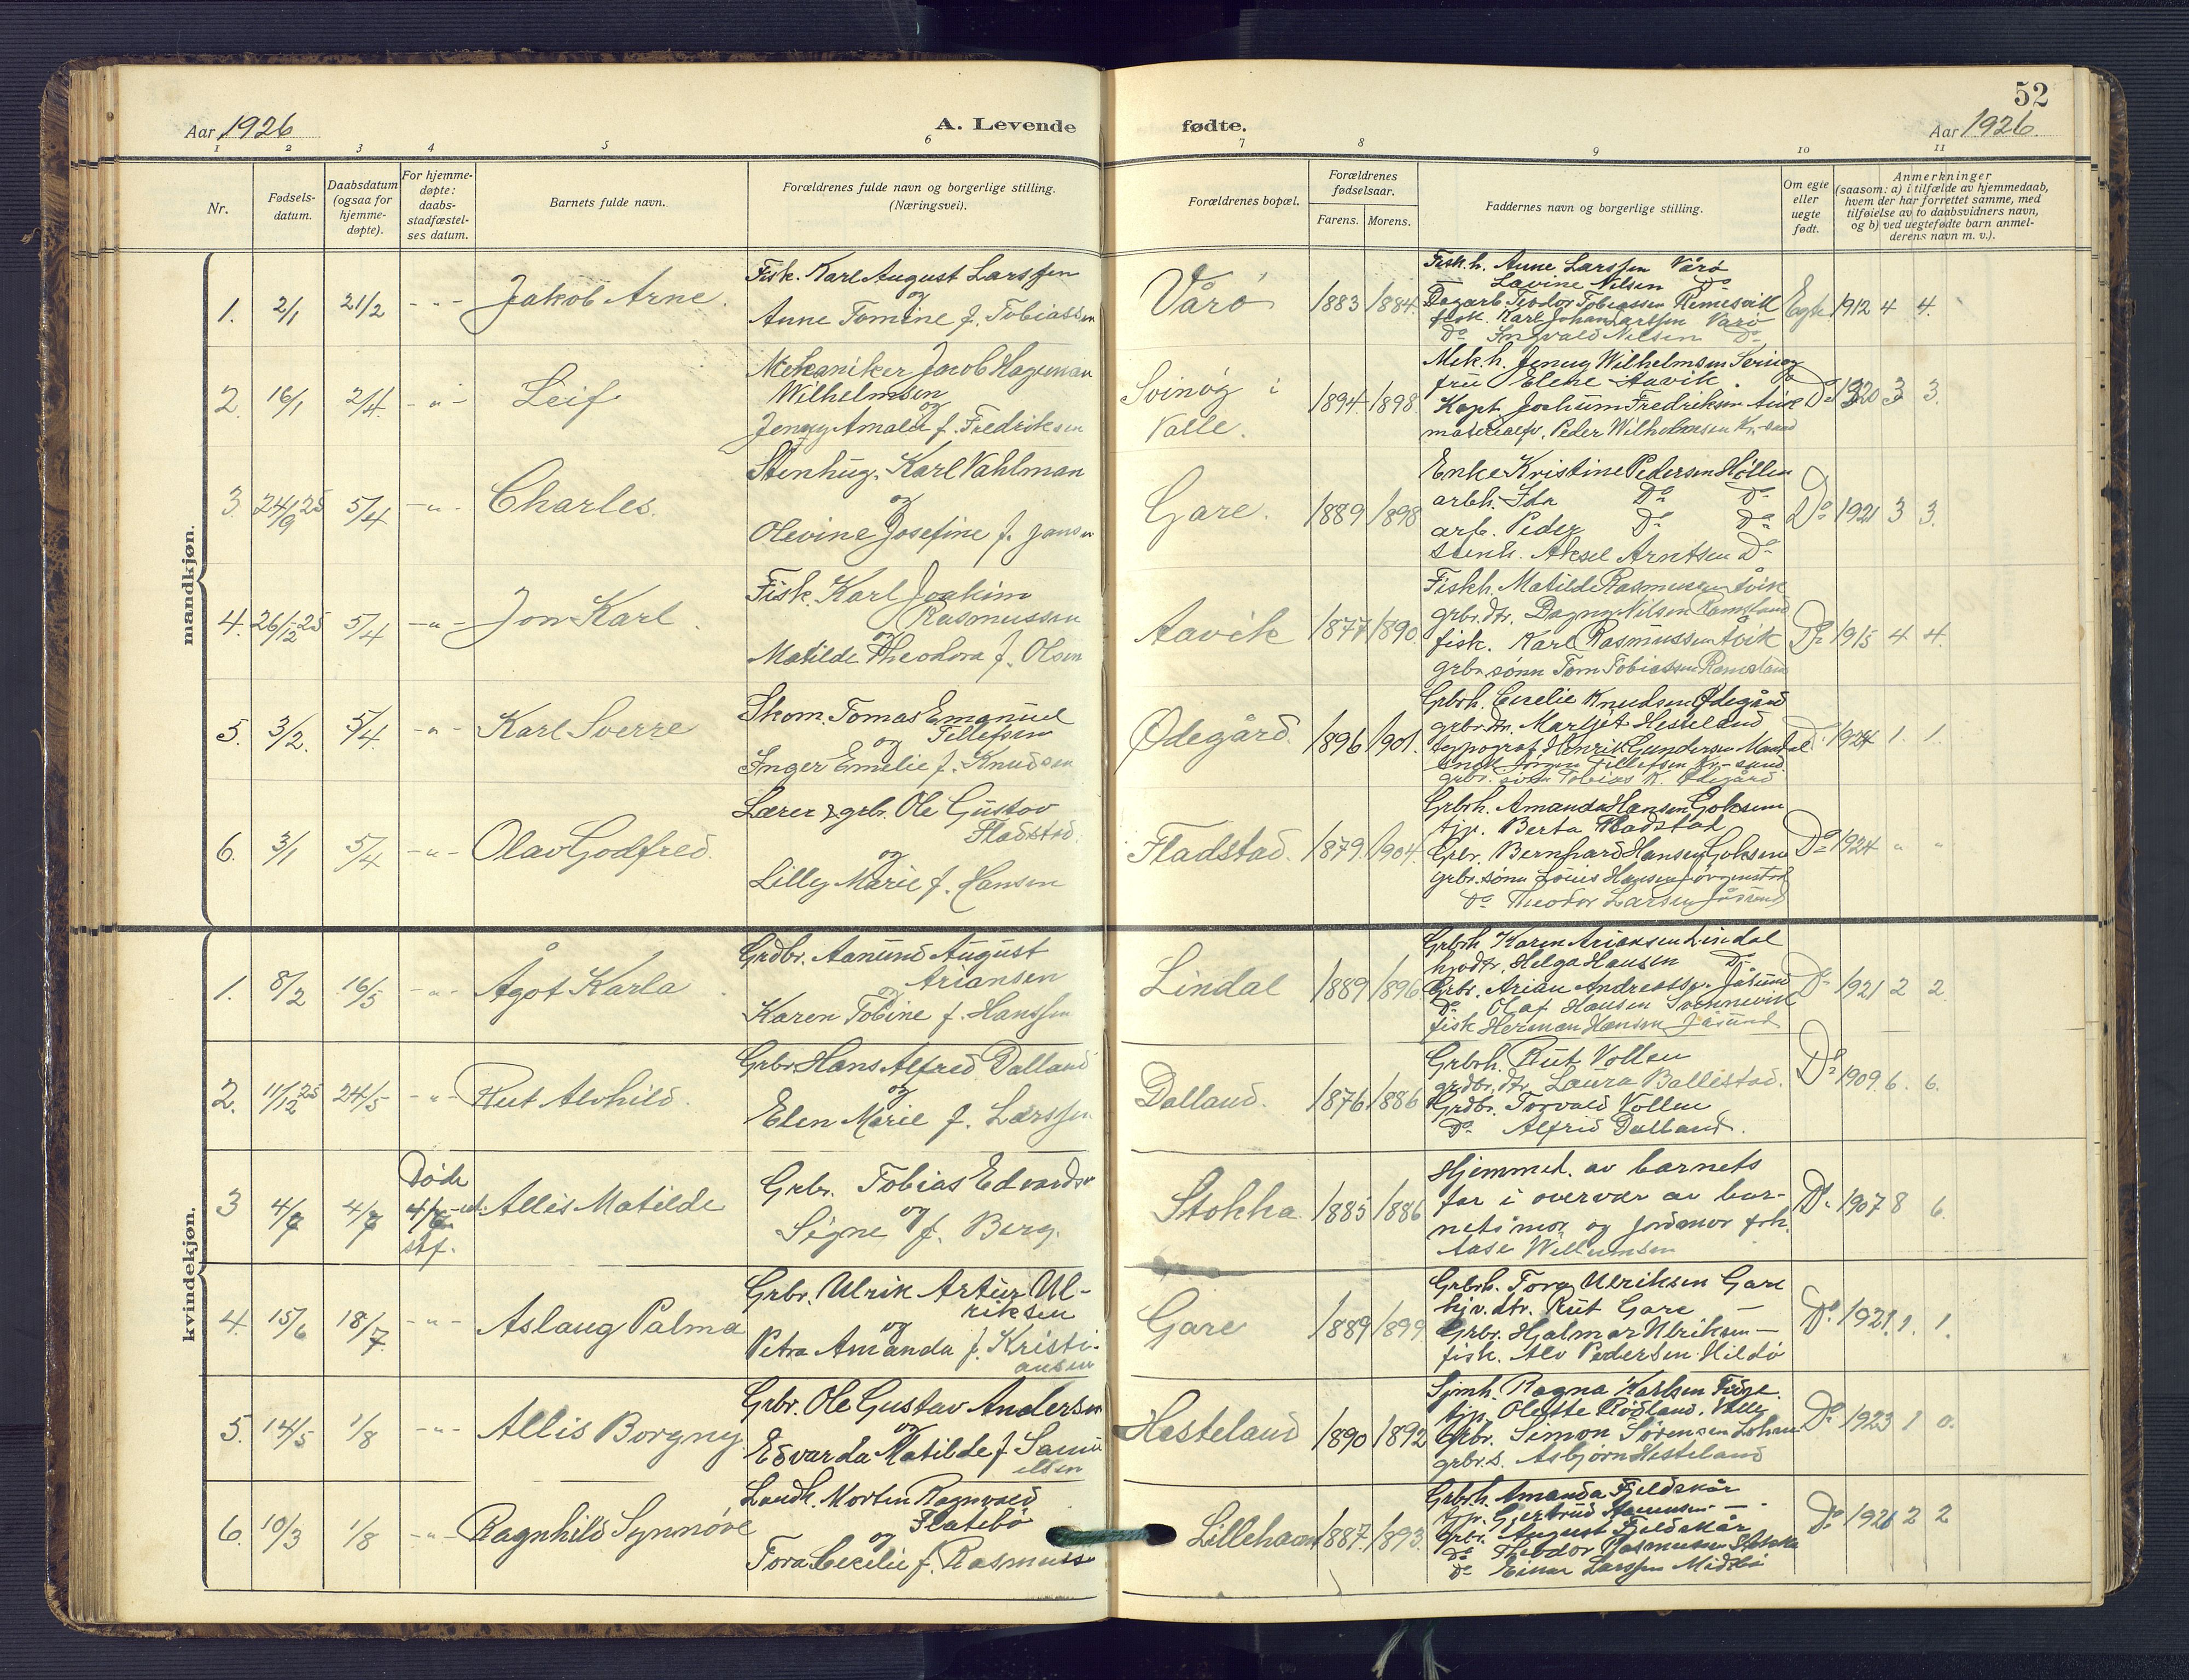 52
Aar 1926
A. Levende
fødte.
Aar 1926.
1 2 3 4 5 6 7 8 9 10 11
Nr.
Fødsels-
datum.
Daabsdatum
(ogsaa for
hjemme-
døpte).
For hjemme-
døpte:
daabs-
stadfæstel-
ses datum.
Barnets fulde navn.
Forældrenes fulde navn og borgerlige stilling.
(Næringsvei).
Forældrenes bopæl.
Forældrenes
fødselsaar.
Farens. Morens.
Faddernes navn og borgerlige stilling.
Om egte
eller
uegte
født.
Anmerkninger
(saasom: a) i tilfælde av hjemmedaab,
hvem der har forrettet samme, med
tilføielse av to daabsvidners navn,
og b) ved uegtefødte barn anmel-
derens navn m. v.).
mandkjøn.
1. 2/1 21/2 - " - Jakob Arne.
Fisk. Karl August Larssen
og
Anne Tomine f. Tobiassen
Vårö 1883 1884
Fisk.h. Anne Larssen Vårö
Lavine Nilsen Do
Dagarb. Teodor Tobiassen Remesvik
fisk. Karl Johan Larssen Varö
Do Ingvald Nilsen Do
Egte 1912 4 4.
2. 16/1 2/4 - " - Leif
Mekaniker Jacob Hageman
Wilhelmsen
og
Jenny Amalie f. Fredriksen
Svinög i
Valle.
1894 1898
Mek.h. Jenny Wilhelmsen Svinög
frü Elene Aavik. Do
Kapt. Jochum Fredriksen
materialfv. Peder Wilhelmsen Kr.-sand
Do 1920 3 3.
3. 24/9 25 5/4 - " - Charles.
Stenhug. Karl Vahlman
og
Olevine Josefine f. Jansen
Gare. 1889 1898
Enke Kristine Pedersen Höllen
arbh. Ida Do Do
arb. Peder Do Do
stenh. Aksel Arntsen Do
Do 1921 3 3.
4. 26/12 25 5/4 - " - Jon Karl.
Fisk. Karl Joakim
Rasmussen
og
Matilde Theodora f. Olsen
Aavik 1877 1890
Fiskh. Matilde Rasmussen Åvik
grbr.dtr. Dagny Nilsen Ramsland
fisk. Karl Rasmussen Åvik
grbr.sönn Tom Tobiassen Ramsland
Do 1915 4 4.
5. 3/2. 5/4. - " - Karl Sverre
Skom. Tomas Emanuel
Tellefsen
og
Inger Emelie f. Knudsen
Ødegård. 1896 1901.
Grbrh. Emelie Knudsen Ødegård
grbr.dtr. Margit Hesseland
typograf Henrik Gundersen Mandal
Jörgen Tellefsen Kr.-sand
grbr. sönn Tobias K. Ødegård
Do 1924 1. 1.
6. 3/1 5/4 - " - Olav Godfred.
Lærer & grbr. Ole Gustav
Fladstad.
og
Lilly Marie f. Hansen
Fladstad. 1879. 1904.
Grbrh. Amanda Hansen Goksem
tjp. Berta Fladstad
Grbr. Bernhard Hansen Goksem
grbr.sönn Louis Hansen Jörgenstad
Do Theodor Larsen Jåsund
Do 1924 " "
kvindekjøn.
1. 8/2 16/5 - " - Ågot Karla.
Grdbr. Aanund August
Ariansen
og
Karen Tobine f. Hanssen
Lindal 1889 1896
Grbrh. Karen Ariansen Lindal
Helga Hansen Do
Grbr. Arian Andreass. Jåsund
Do Olaf Hansen Svennevik
fisk Herman Hansen Jåsund
Do 1921 2 2.
2. 11/12 25 24/5 - " - Rut Alvhild.
Grbr. Hans Alfred Dalland
og
Elen Marie f. Larssen
Dalland. 1876 1886
Grbrh. Rut Vollen
grdbr.dtr. Laura Ballestad.
Grdbr. Torvald Vollen
Do Alfred Dalland.
Do 1909. 6. 6.
3 4/7 4/7 Döde Allis Matilde
Grbr. Tobias Edvards
og
Signe f. Berg.
Stokka 1885 1886
Hjemmed. av barnets
far i overvær av bar-
nets mor og jordmor frk.
Aase Willumsen
Do 1907 8 6.
4. 15/6 18/7 - " - Aslaug Palma
Grbr. Ulrik Artur Ul-
riksen
og
Petra Amanda f. Kristi-
ansen
Gare 1889 1899
Grbrh. Tora Ulriksen Gare
hjv. dtr. Rut Gare —
Grbr. Hjalmar Ulriksen —
fisk. Alv Pedersen Hildö
Do 1921. 1. 1.
5. 14/5 1/8 - " - Allis Borgny.
Grbr. Ole Gustav Andersen
og
Edvarda Matilde f. Samu
elsen
Hesteland 1890 1892
Sjmh. Ragna Karlsen
tjp. Olette Rödland. Valle
Grbr. Simon Sörensen
grbr.s. Asbjörn Hesteland
Do 1923 1 0.
6. 10/3 1/8 - " - Ragnhild Synnöve
Landh. Morten Ragnvald
Flatebö
og
Tora Cecilie f. Rasmuss
Lillehavn 1887. 1893.
Grbrh. Amanda Fjeldskår
tjp. Gjertrud —
Grbr. August Fjeldskår
Do Theodor Rasmussen Stokka
Do Einar Larssen Midtbö
Do 1921 2 2